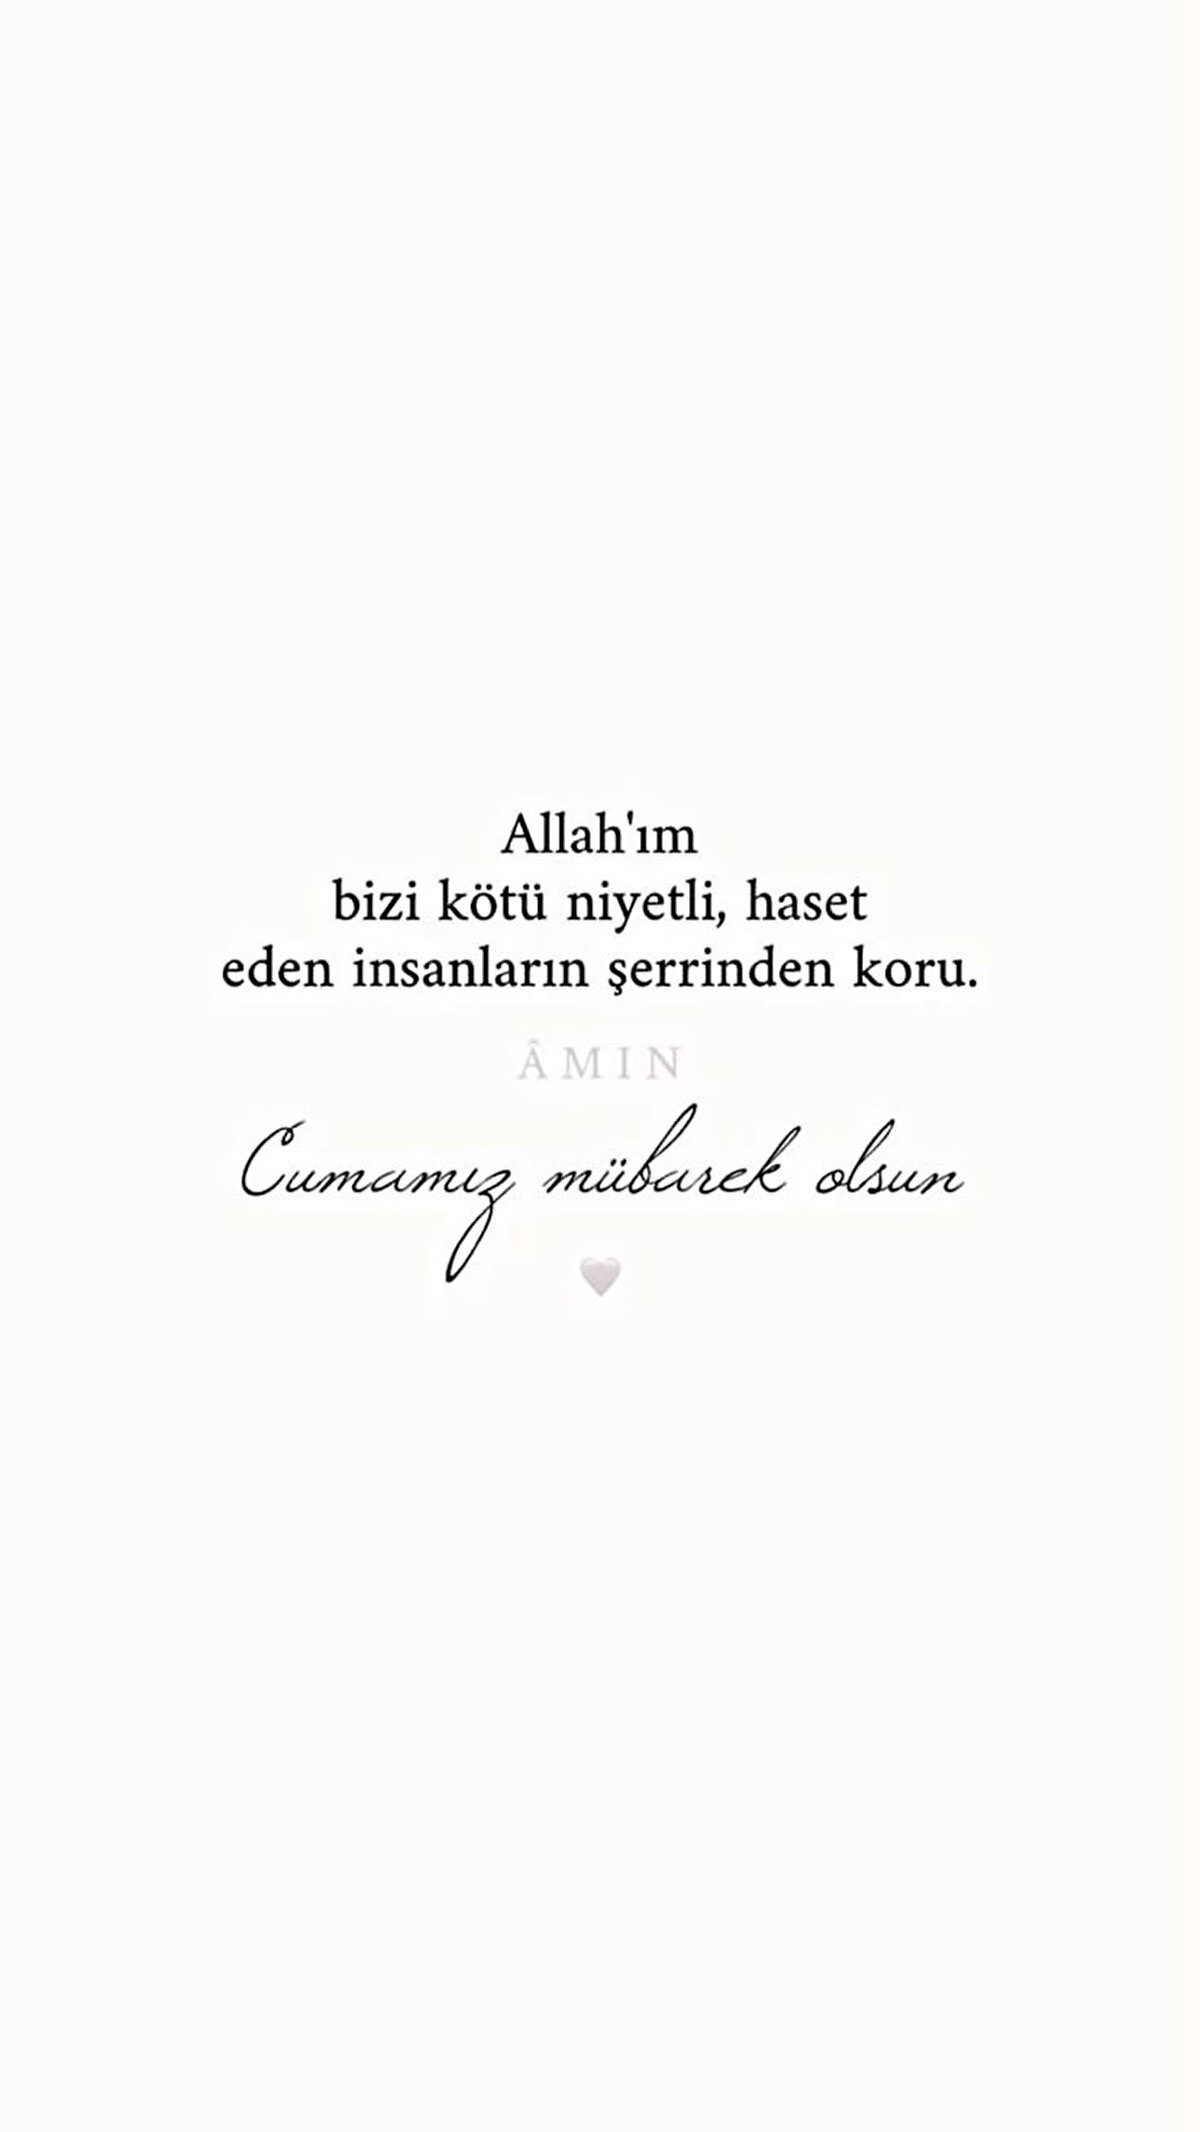 Allah'ım
bizi kötü niyetli, haset
eden insanların şerrinden koru.
ÂMIN
Cumamız mübarek olsun